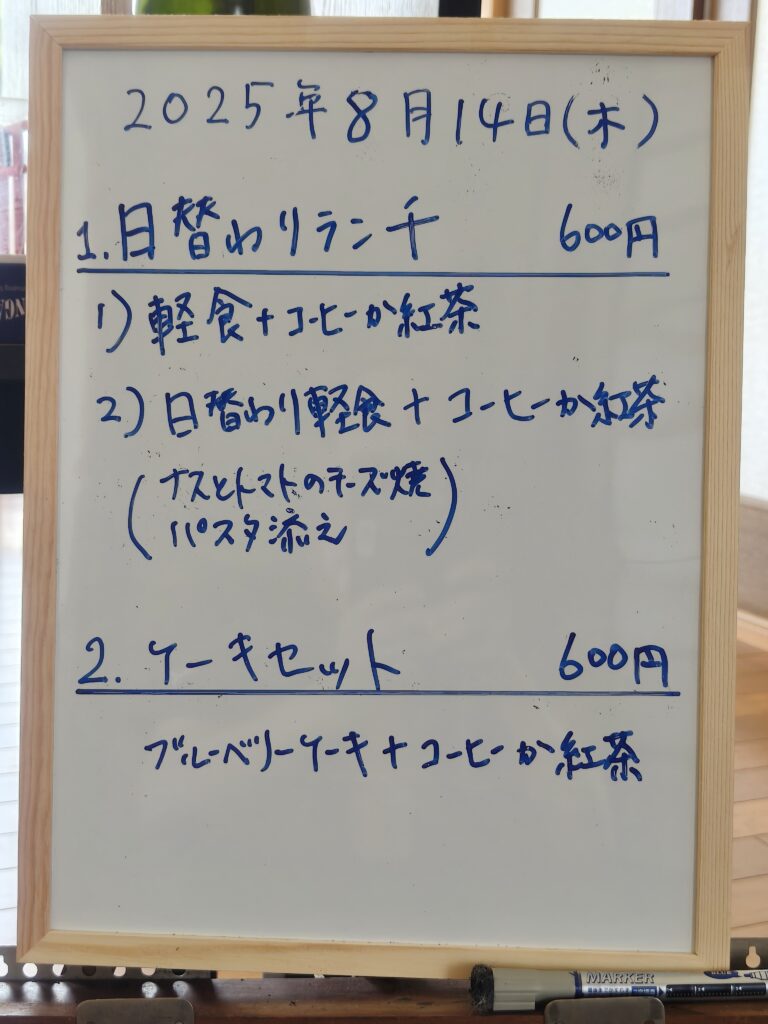 2025年8月14日(木)
1.日替わりランチ 600円
1)軽食+コーヒーか紅茶
2)日替わり軽食+コーヒーか紅茶
(ナスとトマトのチーズ焼
パスタ添え)
2.ケーキセット 600円
ブルーベリーケーキ+コーヒーか紅茶
MARKER